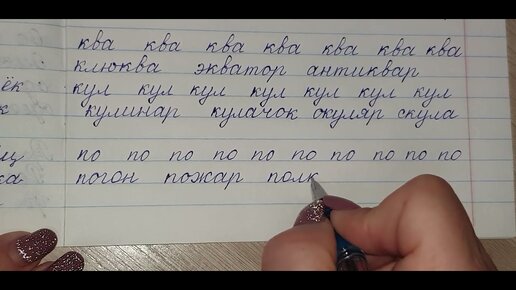 ква ква ква ква ква ква ква
клюква экватор антиквар
ёк кул кул кул кул кул кул кул
к кулинар кулачок окуляр скула
щ по по по по по по по по по по
ка погон пожар полк